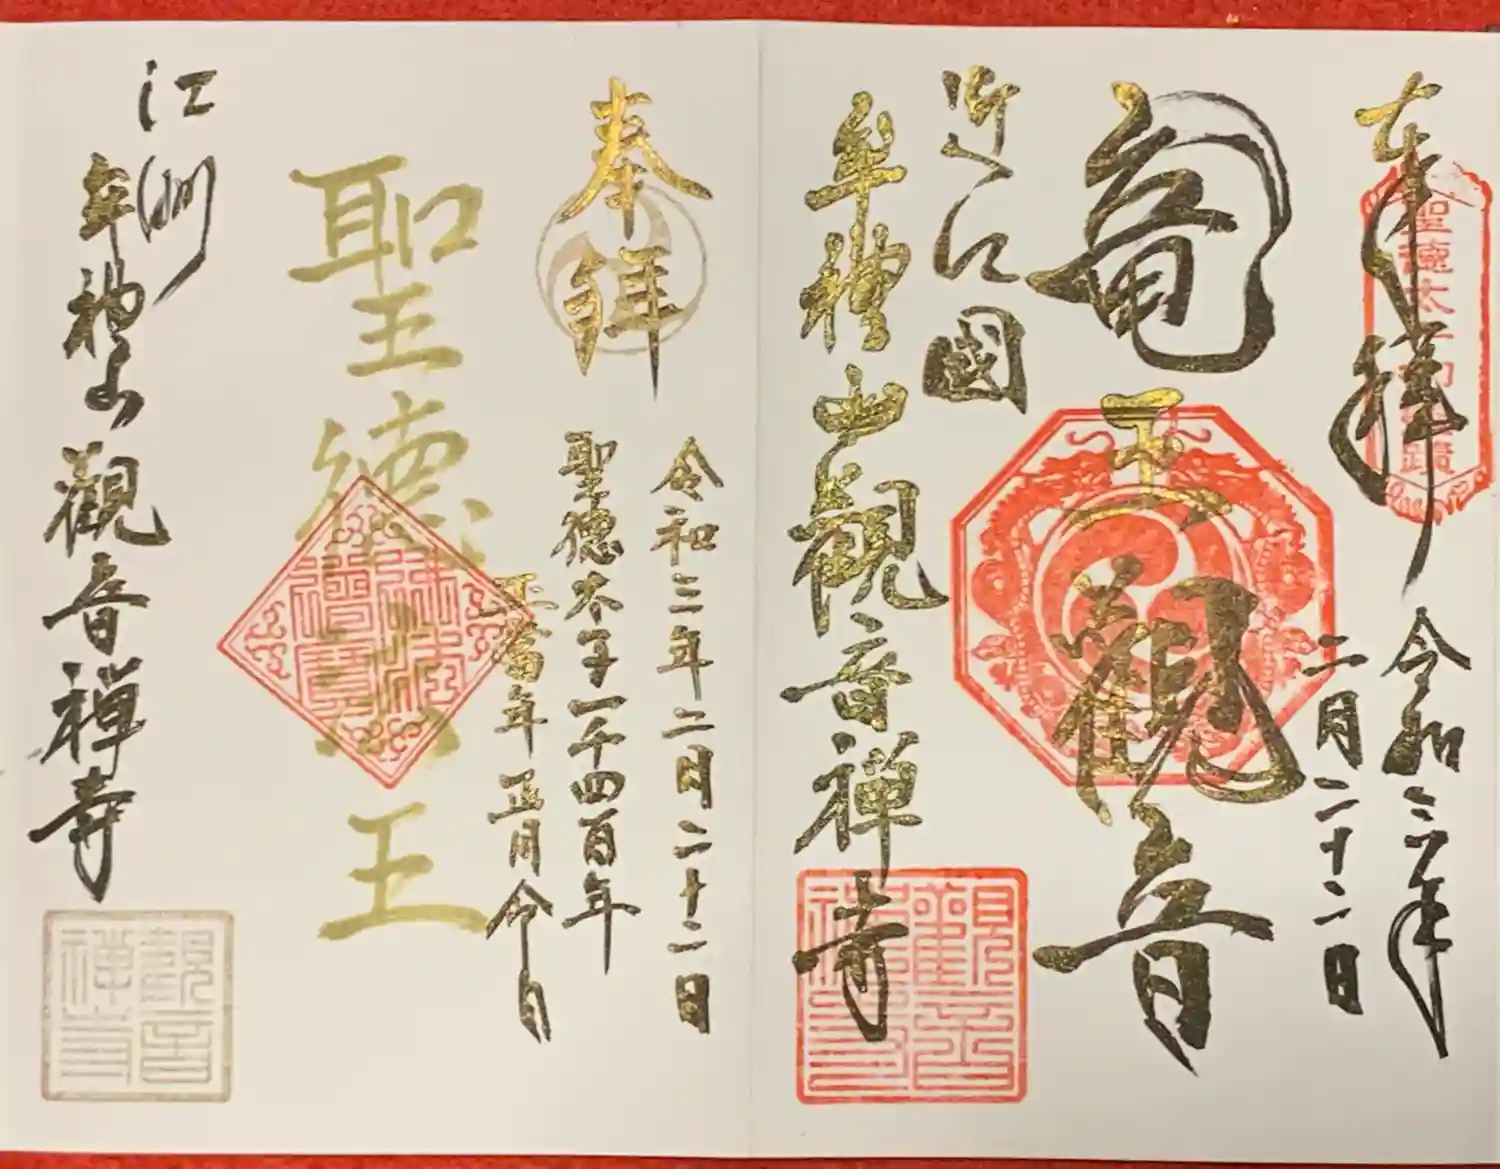 奉拝
聖徳太子御遺蹟
令和三年
二月二十二日
竜王観音
近江國
牟禮山観音禅寺
觀音禅寺
奉拝
令和三年二月二十二日
聖德太子一千四百年
正當年正月命日
聖德法王
佛法僧寶
江州
牟禮山觀音禅寺
觀音禅寺